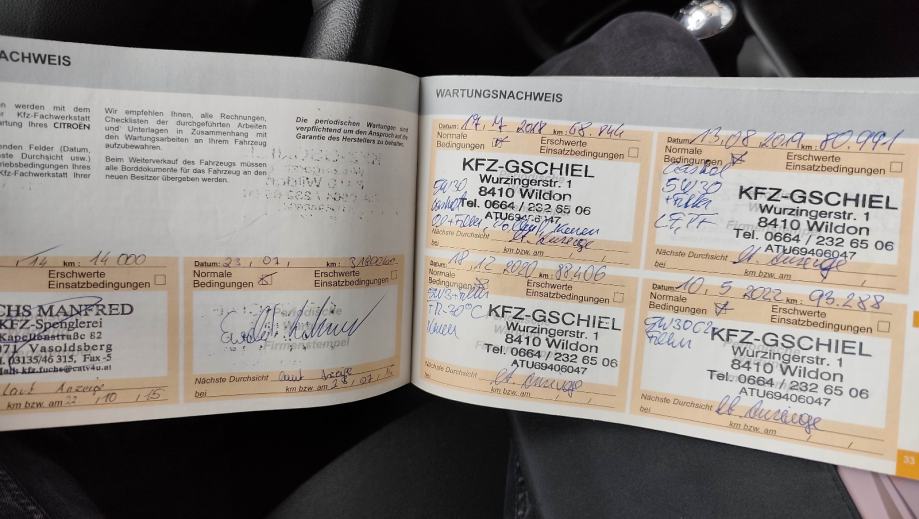 ACHWEIS
en werden mit dem
r Kfz-Fachwerkstatt
artung Ihres CITROËN
enden Felder (Datum,
ste Durchsicht usw.)
riebsbedingungen Ihres
Kfz-Fachwerkstatt Ihrer
Wir empfehlen Ihnen, alle Rechnungen,
Checklisten der durchgeführten Arbeiten
und Unterlagen in Zusammenhang mit
den Wartungsarbeiten an Ihrem Fahrzeug
aufzubewahren.
Beim Weiterverkauf des Fahrzeugs müssen
alle Borddokumente für das Fahrzeug an den
neuen Besitzer übergeben werden.
Die periodischen Wartungen sind
verpflichtend um den Anspruch auf die
Garantie des Herstellers zu behalten.
/14 km: 14 000
Erschwerte
Einsatzbedingungen
CHS MANFRED
KFZ-Spenglerei
Kapellenstraße 82
071 Vasoldsberg
03135/46 315, Fax -5
kfz.fuchs@catv4u.at
Laut Anzeige
km bzw. am 22, 10, 15
Datum: 23, 07, km:
Normale
Bedingungen
Erschwerte
Einsatzbedingungen
Firmenstempel
Nächste Durchsicht Laut Anzeige
bei km bzw. am
WARTUNGSNACHWEIS
Datum: 2018 km: 68.844
Normale
Bedingungen
Erschwerte
Einsatzbedingungen
KFZ-GSCHIEL
Wurzingerstr. 1
8410 Wildon
Tel. 0664 / 232 65 06
5W30
Nächste Durchsicht lt. Anzeige
bei km bzw. am
Datum: 13,08 2019 km: 80.991
Normale
Bedingungen
Erschwerte
Einsatzbedingungen
Castrol
5W30
+ Filter
KFZ-GSCHIEL
Wurzingerstr. 1
8410 Wildon
Tel. 0664 / 232 65 06
ATU69406047
Nächste Durchsicht lt. Anzeige
bei km bzw. am
18, 12 2020 km: 88.406
Bedingungen
Erschwerte
Einsatzbedingungen
KFZ-GSCHIEL
Wurzingerstr. 1
8410 Wildon
Tel. 0664 / 232 65 06
ATU69406047
-30°C
Nächste Durchsicht lt. Anzeige
bei km bzw. am
Datum: 10, 5 2022 km: 93.288
Normale
Bedingungen
Erschwerte
Einsatzbedingungen
5W30C2
KFZ-GSCHIEL
Wurzingerstr. 1
8410 Wildon
Tel. 0664 / 232 65 06
ATU69406047
Nächste Durchsicht lt. Anzeige
bei km bzw. am
33